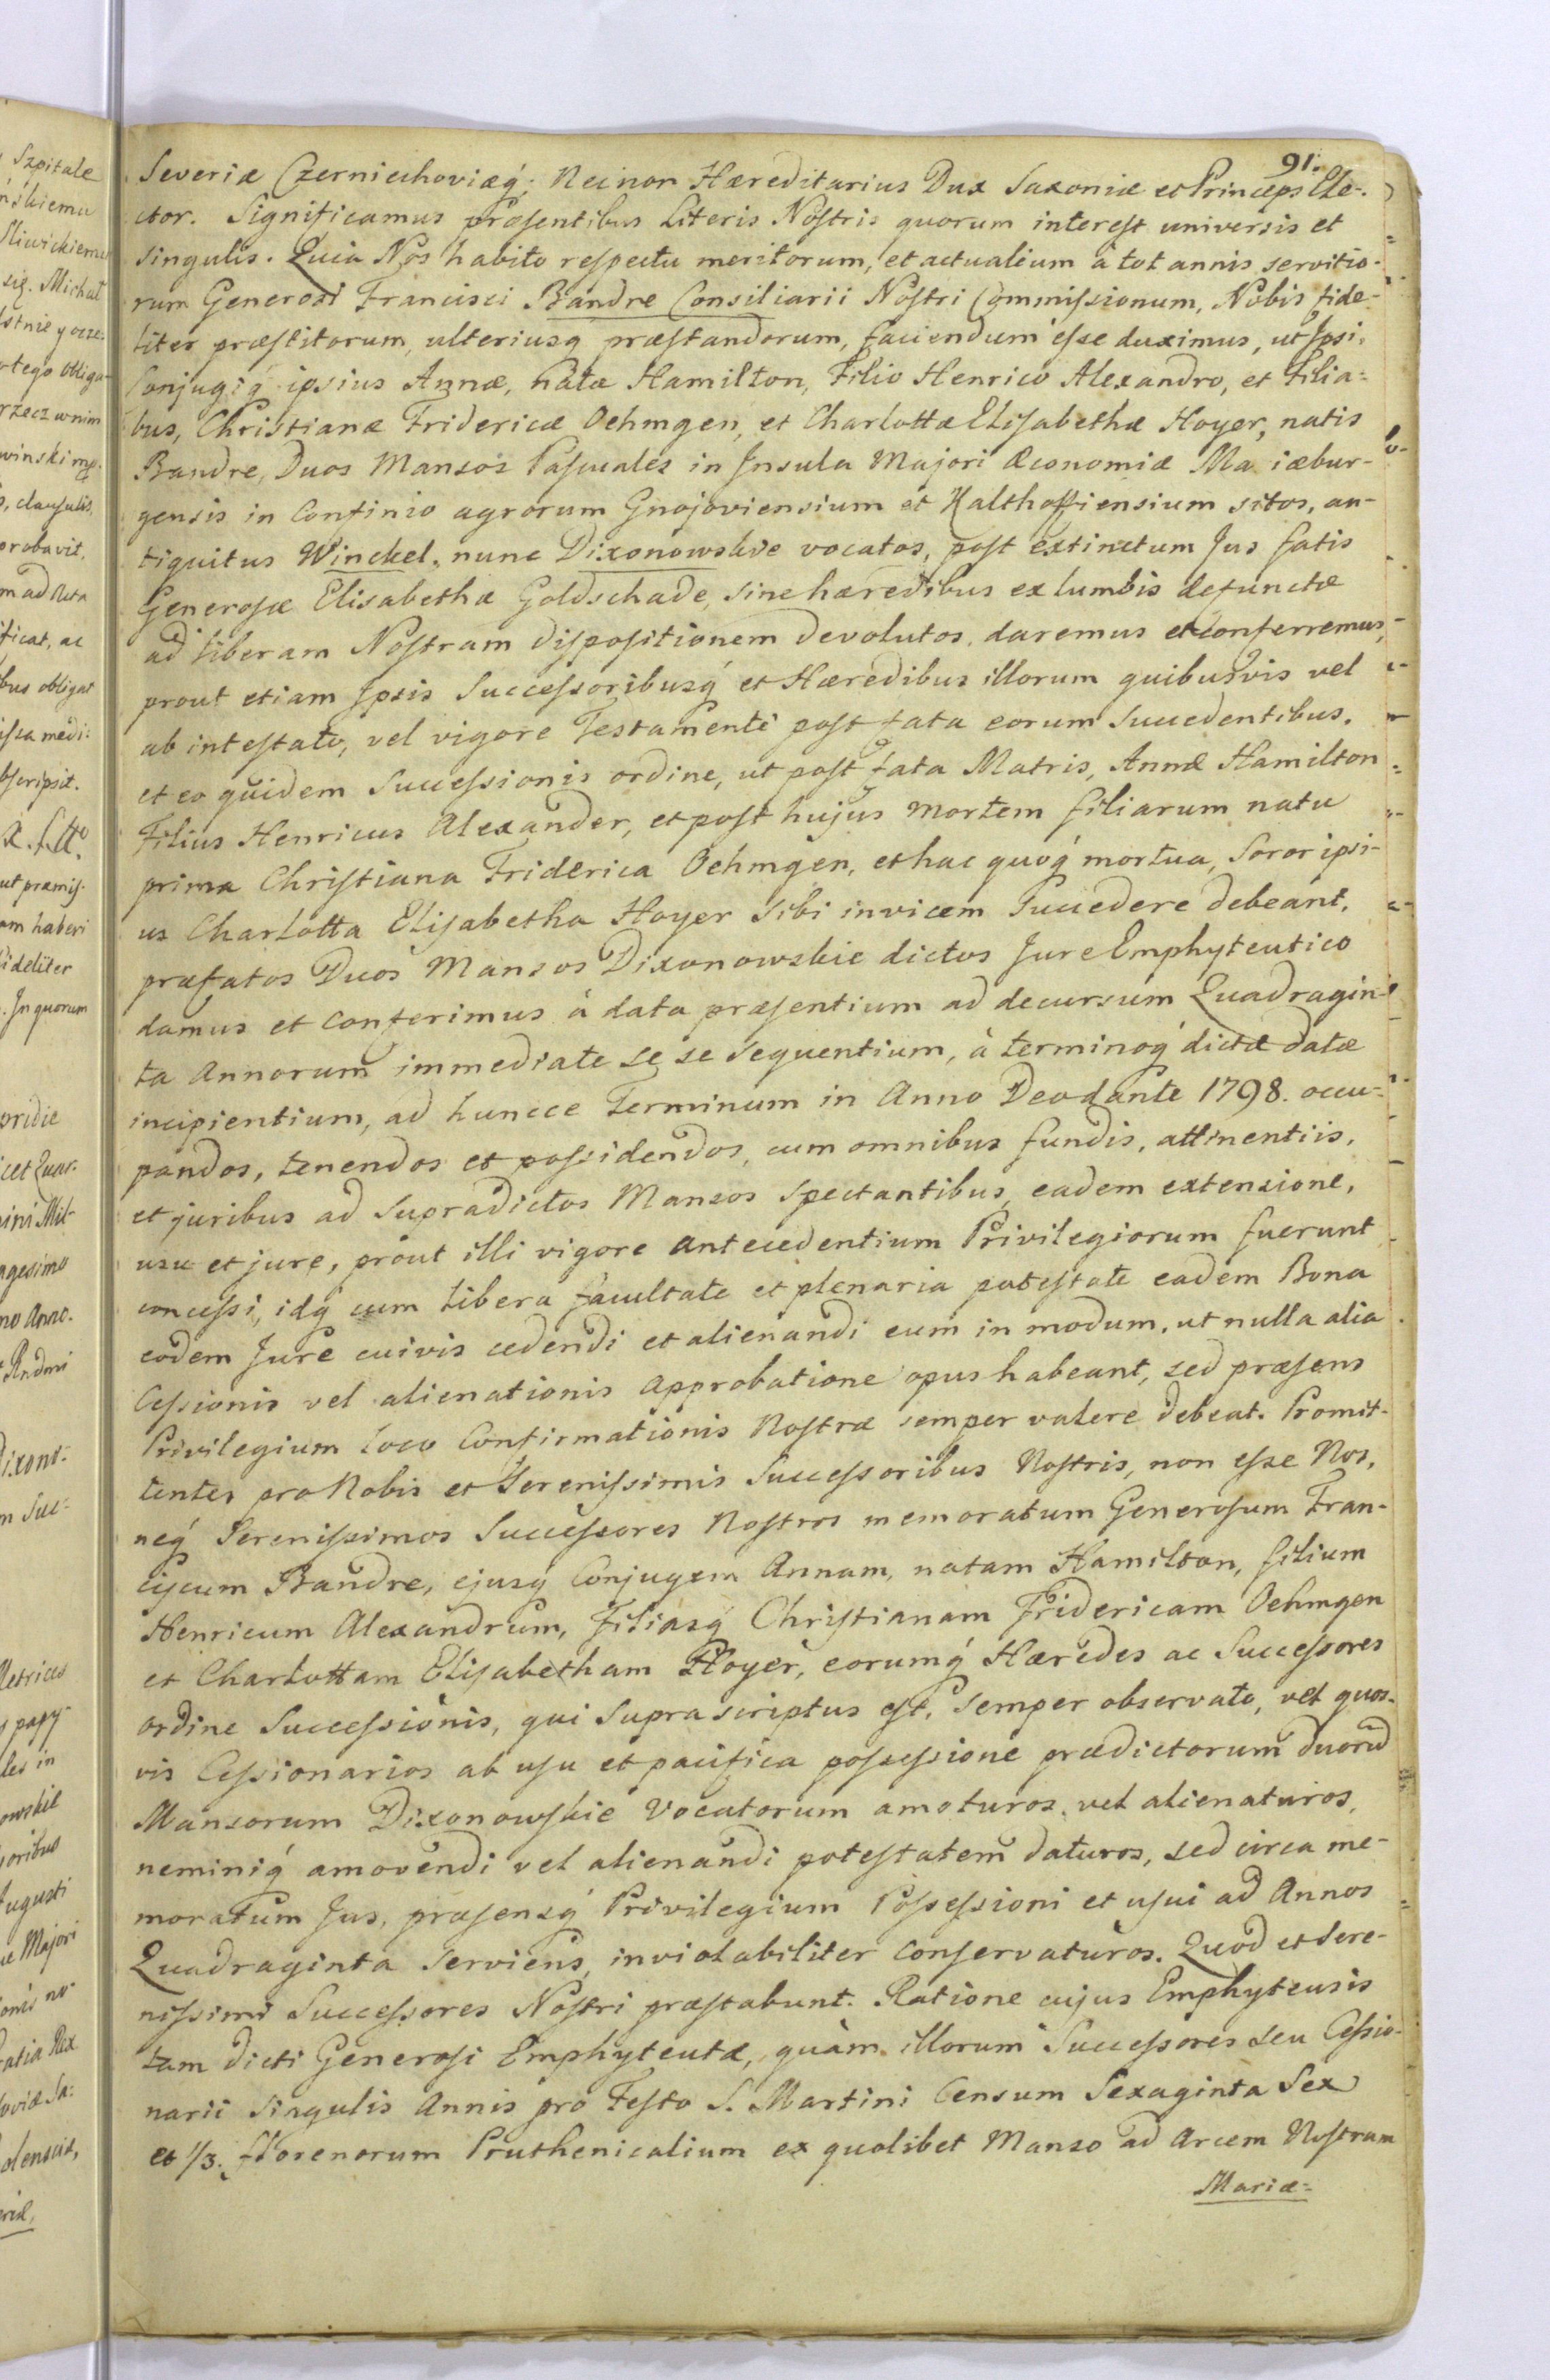 91.
Severiæ Czerniechoviæq́; Necnon Hæreditarius Dux Saxoniæ et Princeps Ele-
ctor. Significamus præsentibus Literis Nostris quorum interest universis et
singulis. Quia Nos habito respectu meritorum, et actualium à tot annis servitio-
rum Generosi Francisci Bandre Consiliarii Nostri Commissionum, Nobis fide-
liter præstitorum, ulteriusq́ præstandorum, faciendum esse duximus, ut Ipsi,
Conjugiq́ ipsius Annæ, natæ Hamilton, Filio Henrico Alexandro, et Filia=
bus, Christianæ Fridericæ Oehmgen, et Charlottæ Elisabethæ Hoyer, natis
Bandre, Duos Mansos Pascuales in Insula Majori Œconomiæ Mariæbur-
gensis in Confinio agrorum Gnojoviensium et Kalthoffiensium sitos, an-
tiquitus Winckel, nunc Dixonowskie vocatos, post extinctum Jus fatis
Generosæ Elisabethæ Goldschade, sine hæredibus ex lumbis defunctæ
ad liberam Nostram dispositionem devolutos, daremus et conferremus,
prout etiam Ipsis Successoribusq́ et Hæredibus illorum quibusvis vel
ab intestato, vel vigore Testamenti post fata eorum succedentibus,
et eo quidem Successionis ordine, ut post fata Matris, Annæ Hamilton
Filius Henricus Alexander, et post hujus mortem filiarum natu
prima Christiana Friderica Oehmgen, et hac quoq́ mortua, Soror ipsi-
us Charlotta Elisabetha Hoyer sibi invicem succedere debeant,
præfatos Duos Mansos Dixonowskie dictos Jure Emphyteutico
damus et conferimus à data præsentium ad decursum Quadragin-
ta Annorum immediate se se sequentium, à terminoq́ dictæ datæ
incipientium, ad huncce Terminum in Anno Deo dante 1798. occu-
pandos, tenendos et possidendos, cum omnibus fundis, attinentiis,
et juribus ad supradictos Mansos spectantibus, eadem extensione,
usu et jure, prout illi vigore antecedentium Privilegiorum fuerunt
concessi, idq́ cum libera facultate et plenaria potestate eadem Bona
eodem Jure cuivis cedendi et alienandi eum in modum, ut nulla alia
Cessionis vel alienationis approbatione opus habeant, sed præsens
Privilegium loco Confirmationis Nostræ semper valere debeat. Promit-
tentes pro Nobis et Serenissimis Successoribus Nostris, non esse Nos,
neq́ Serenissimos Successores Nostros memoratum Generosum Fran-
ciscum Bandre, ejusq́ Conjugem Annam, natam Hamilton, filium
Henricum Alexandrum, Filiasq́ Christianam Fridericam Oehmgen
et Charlottam Elisabetham Hoyer, eorumq́ Hæredes ac Successores
ordine Successionis, qui supra scriptus est, semper observato, vel quos-
vis Cessionarios ab usu et pacifica possessione prædictorum duorū
Mansorum Dixonowskie vocatorum amoturos, vel alienaturos,
neminiq́ amovendi vel alienandi potestatem daturos, sed circa me-
moratum Jus, præsensq́ Privilegium Possessioni et usui ad Annos
Quadraginta serviens, inviolabiliter conservaturos. Quod et Sere-
nissimi Successores Nostri præstabunt. Ratione cujus Emphyteusis
tam dicti Generosi Emphyteutæ, quàm illorum Successores seu Cessio-
narii singulis Annis pro Festo S. Martini Censum Sexaginta Sex
et 1/3. Florenorum Pruthenicalium ex quolibet Manso ad Arcem Nostram
Mariæ=